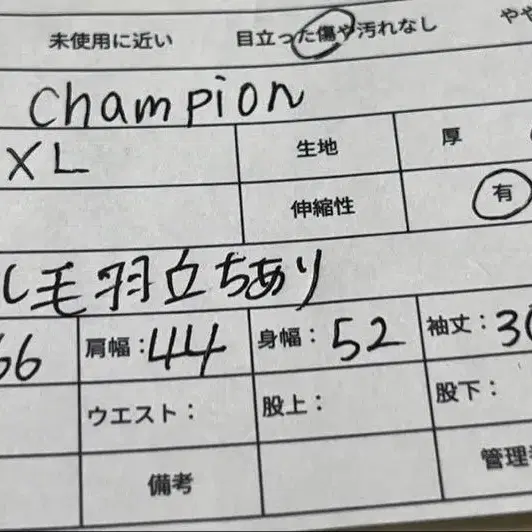 未使用に近い 目立った傷や汚れなし やや
Champion
XL 生地 厚
伸縮性 有
し毛羽立ちあり
66 肩幅：44 身幅：52 袖丈：3
ウエスト： 股上： 股下：
備考 管理